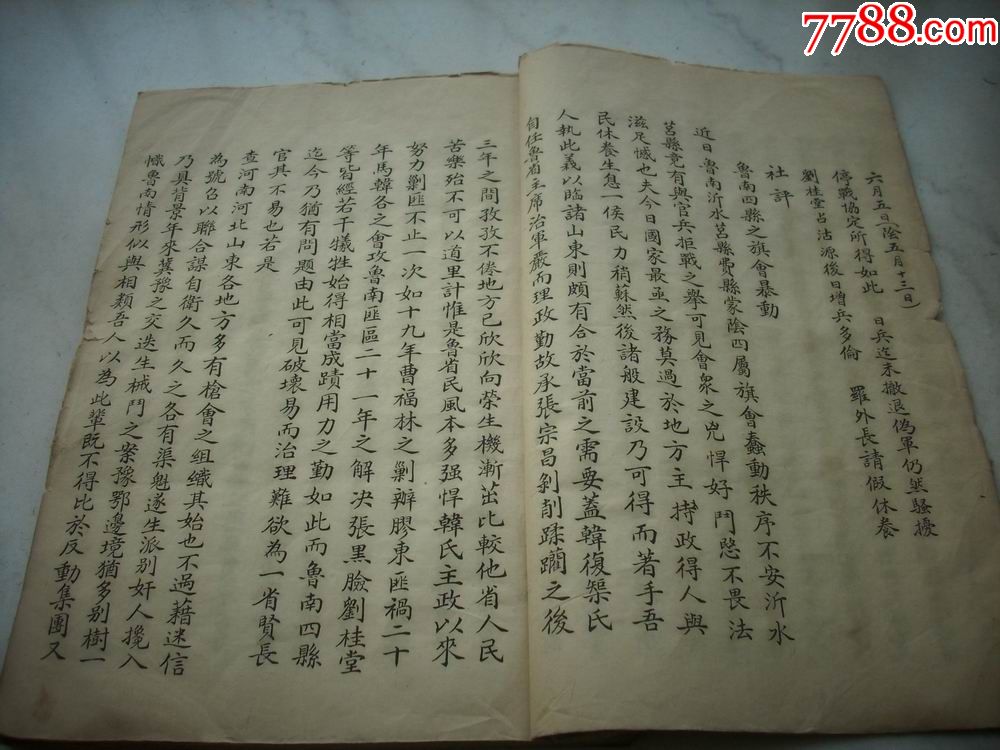 7788.com
六月五日(陰五月十三日)
停戰協定所得如此 日兵迄未撤退偽軍仍然騷擾
劉桂堂占沽源後日增兵多倫 羅外長請假休養
社評
魯南四縣之旗會暴動
近日魯南沂水莒縣費縣蒙陰四屬旗會蠢動秩序不安沂水
莒縣竟有與官兵拒戰之舉可見會衆之兇悍好鬥愍不畏法
滋足憾也夫今日國家最亟之務莫過於地方主持政得人與
民休養生息一俟民力稍蘇然後諸般建設乃可得而著手吾
人執此義以臨諸山東則頗有合於當前之需要蓋韓復榘氏
自任魯省主席治軍嚴而理政勤故承張宗昌剝削蹂躪之後
三年之間孜孜不倦地方已欣欣向榮生機漸茁比較他省人民
苦樂殆不可以道里計惟是魯省民風本多强悍韓氏主政以來
努力剿匪不止一次如十九年曹福林之剿辦膠東匪禍二十
年馬韓各之會攻魯南匪區二十一年之解决張黑臉劉桂堂
等皆經若干犧牲始得相當成蹟用力之勤如此而魯南四縣
迄今乃猶有問題由此可見破壞易而治理難欲為一省賢長
官真不易也若是
查河南河北山東各地方多有槍會之組織其始也不過藉迷信
為號召以聯合謀自衛久而久之各有渠魁遂生派別奸人攙入
乃具背景年來冀豫之交迭生械鬥之案豫鄂邊境猶多別樹一
幟魯南情形似與相類吾人以為此輩既不得比於反動集團又